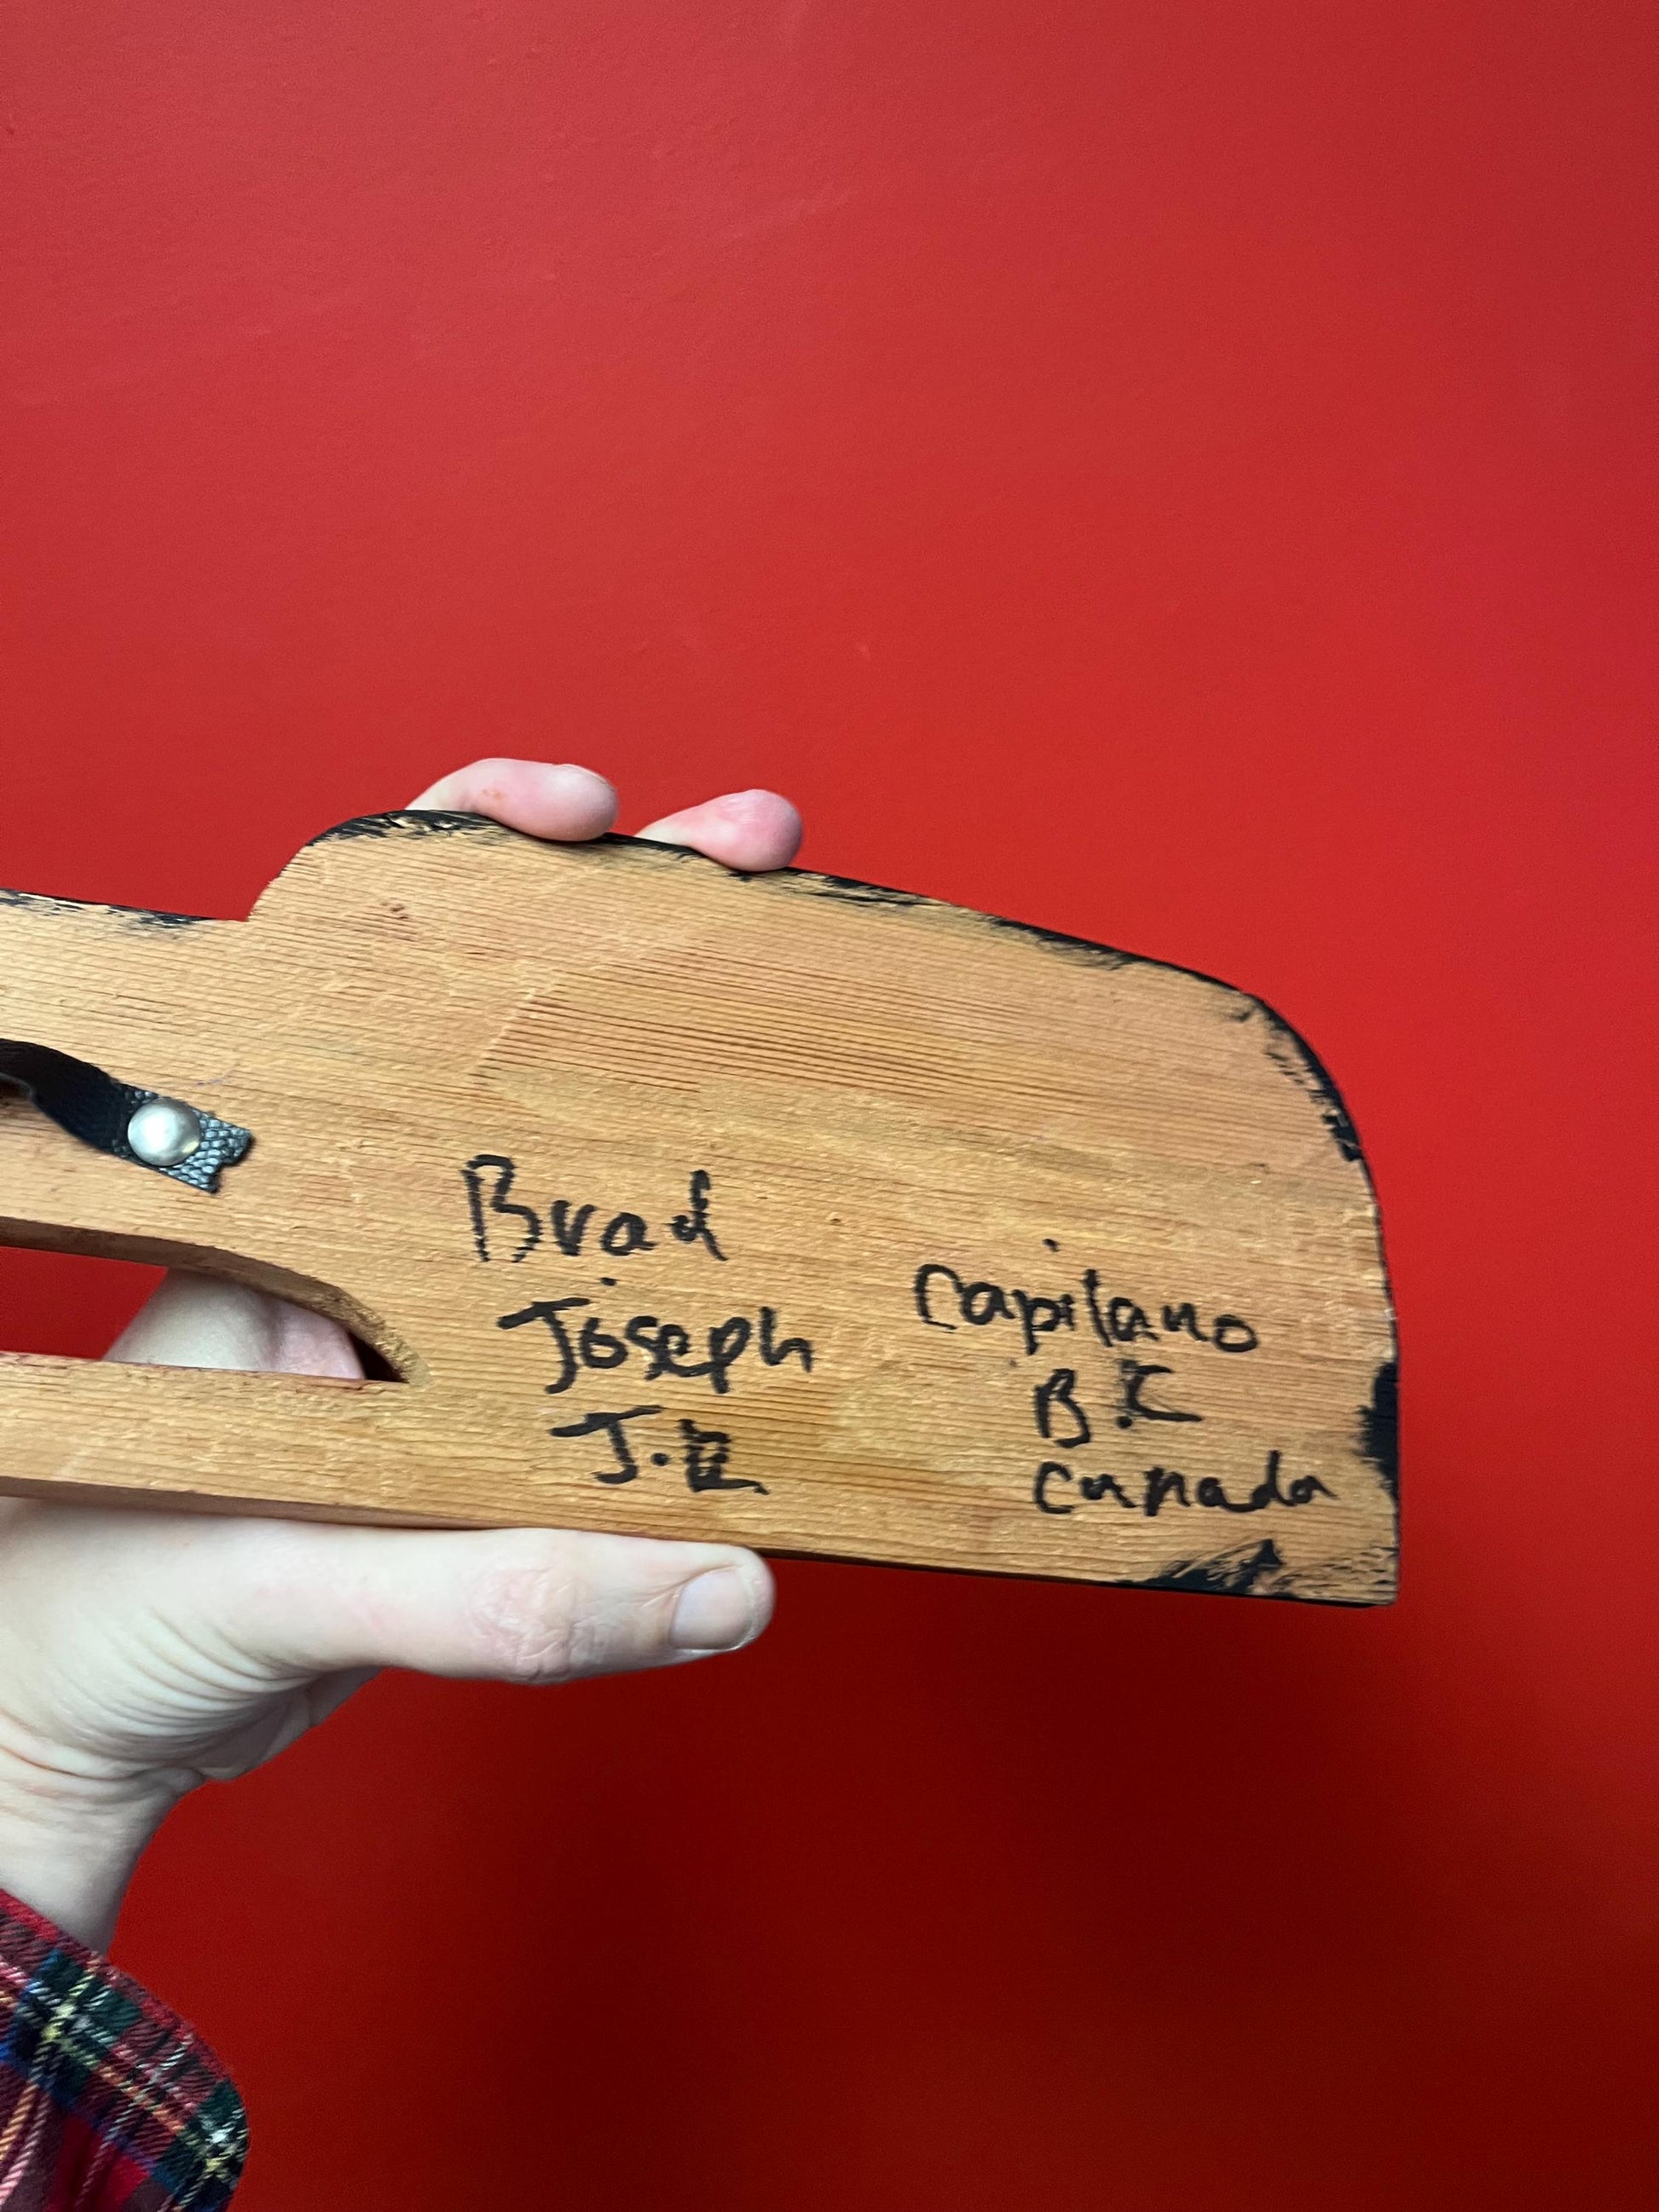 Brad
Joseph
J.
Capilano
B.C
Canada